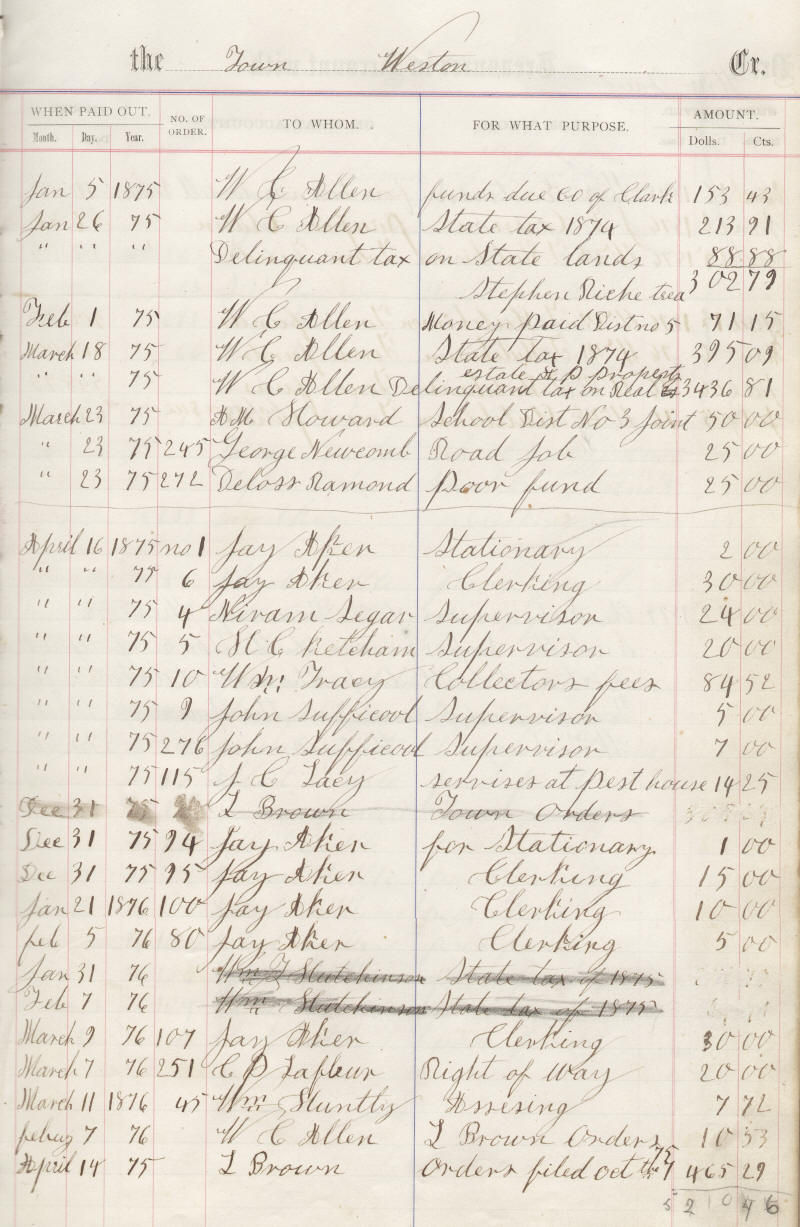 the Town Weston Cr.
WHEN PAID OUT. NO. OF ORDER. TO WHOM. FOR WHAT PURPOSE. AMOUNT.
Month. Day. Year. Dolls. Cts.
Jan 5 1875 W C Allen funds due CO of Clark 153 43
Jan 26 75 W C Allen State tax 1874 213 91
" " " Delinquant tax on State lands 88 88
Stephen Riche trea 302 79
Feb 1 75 W C Allen Money paid Dist no 5 71 15
March 18 75 W C Allen State tax 1874 395 09
estate & p property
" " 75 W C Allen Delinquant tax on Real 3436 81
March 23 75 Howard School Dist No 3 Joint 50 00
" 23 75 245 George Newcomb Road Job 25 00
" 23 75 272 Deloss Ramond Poor fund 25 00
April 16 1875 no 1 Jay Aker Stationary 2 00
" " 75 6 Jay Aker Clerking 30 00
" " 75 4 Hiram Segar Supervisor 24 00
" " 75 5 H C Ketcham Supervisor 20 00
" " 75 10 Wm Tracy Collectors fees 84 52
" " 75 9 John Sufficool Supervisor 5 00
" " 75 276 John Sufficool Supervisor 7 00
" " 75 115 J C Lacy servises at Pest house 14 25
Dec 31 75 L Brown Town Orders
Dec 31 75 94 Jay Aker for Stationary 1 00
Dec 31 75 95 Jay Aker Clerking 15 00
Jan 21 1876 100 Jay Aker Clerking 10 00
feb 5 76 80 Jay Aker Clerking 5 00
Jan 31 76 Wm Hutchinson State tax of 1875
Feb 7 76 Wm Hutchinson State tax of 1875
March 9 76 107 Jay Aker Clerking 30 00
March 7 76 251 C P Lafleur Right of Way 20 00
March 11 1876 45 Wm Huntly Assesing 7 72
7 76 W C Allen L Brown Orders 10 53
April 14 75 L Brown Orders filed Oct 75 465 29